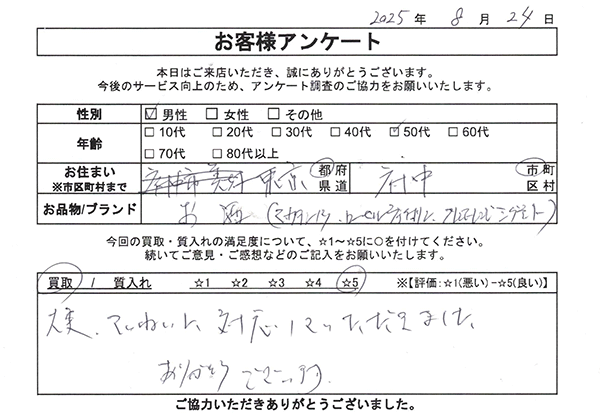 2025年 8月 24日
お客様アンケート
本日はご来店いただき、誠にありがとうございます。
今後のサービス向上のため、アンケート調査のご協力をお願いいたします。
性別 ☑ 男性 □ 女性 □ その他
年齢 □ 10代 □ 20代 □ 30代 □ 40代 ☑ 50代 □ 60代
□ 70代 □ 80代以上
お住まい ※市区町村まで 東京 都府県道 府中 市町区村
お品物/ブランド お酒 (マッカラン
今回の買取・質入れの満足度について、☆1～☆5に○を付けてください。
続いてご意見・ご感想などのご記入をお願いいたします。
買取 / 質入れ ☆1 ☆2 ☆3 ☆4 ☆5 ※【評価:☆1(悪い)－☆5(良い)】
大変、ていねいに対応していただきました
ありがとうございます
ご協力いただきありがとうございました。